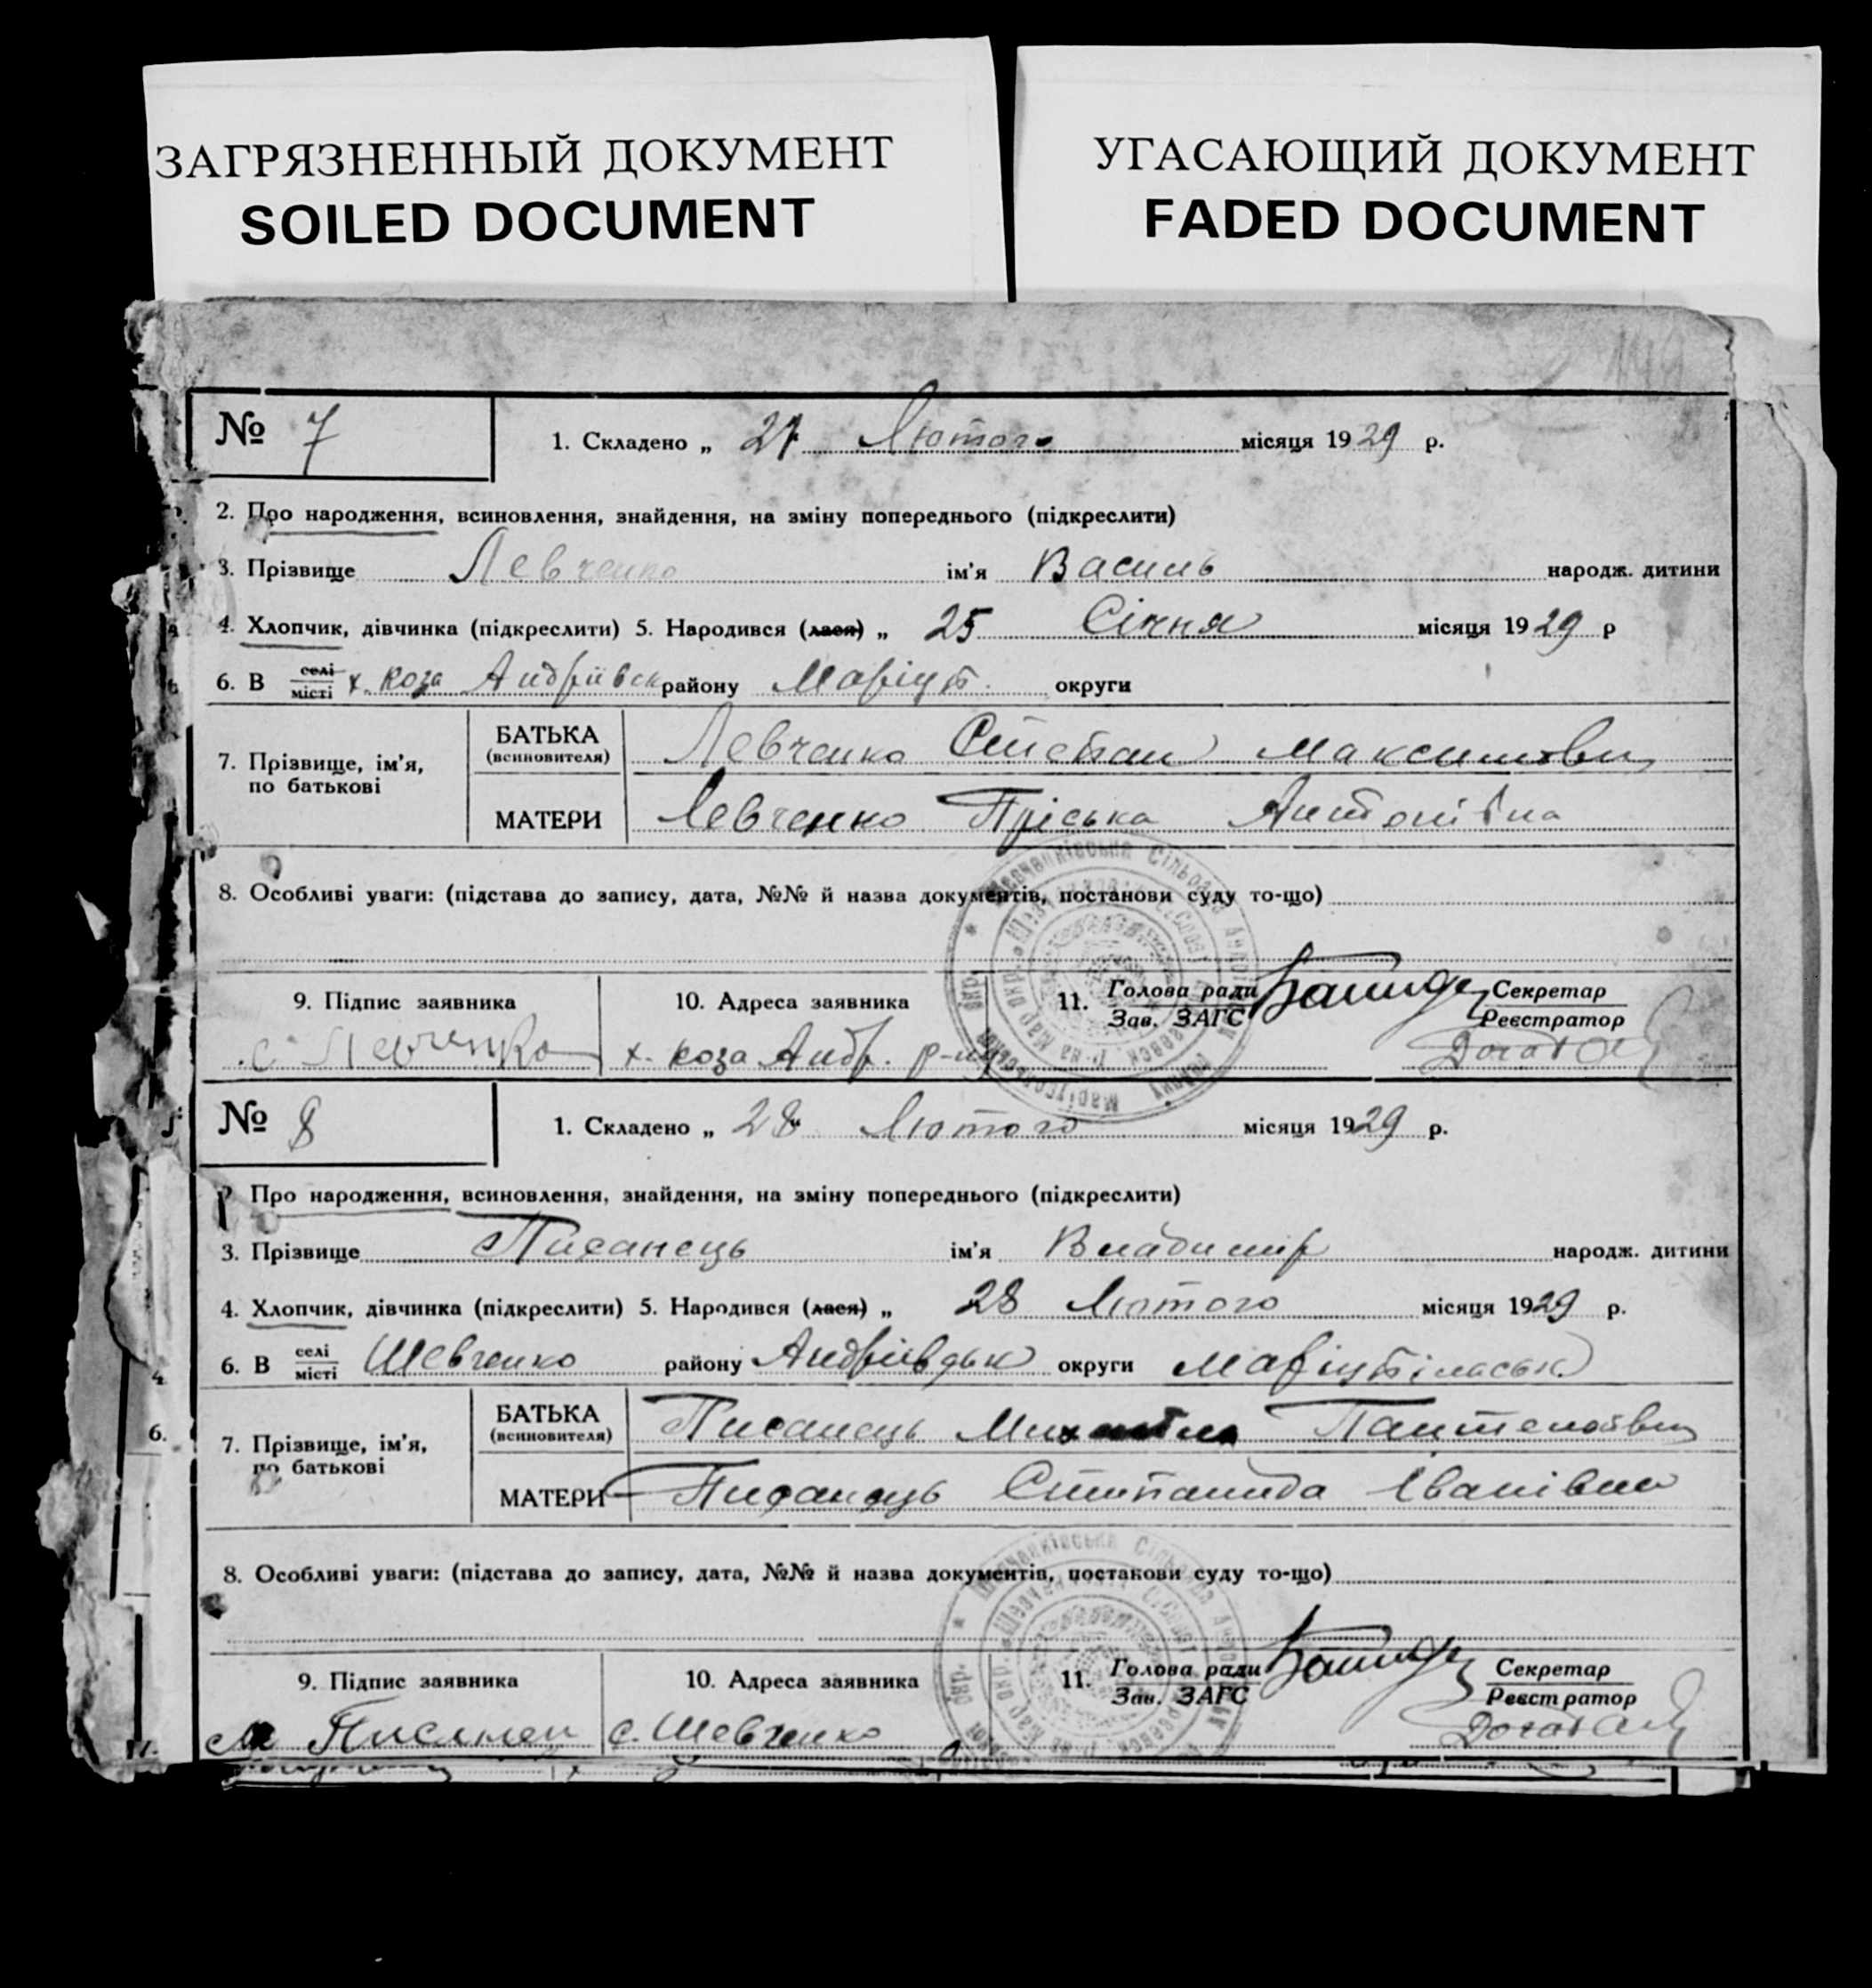 ЗАГРЯЗНЕННЫЙ ДОКУМЕНТ
SOILED DOCUMENT
УГАСАЮЩИЙ ДОКУМЕНТ
FADED DOCUMENT
№ 7
1. Складено „ 27 Лютого місяця 1929 р.
2. Про народження, всиновлення, знайдення, на зміну попереднього (підкреслити)
3. Прізвище Левченко ім'я Василь народж. дитини
4. Хлопчик, дівчинка (підкреслити) 5. Народився (лася) „ 25 Січня місяця 1929 р
6. В селі місті х. Коза Андріівськ району Маріуп. округи
7. Прізвище, ім'я, по батькові
БАТЬКА (всиновителя) Левченко Степан Максимович
МАТЕРИ Левченко Пріська Антонівна
8. Особливі уваги: (підстава до запису, дата, №№ й назва документів, постанови суду то-що)
9. Підпис заявника
10. Адреса заявника
11. Голова ради Зав. ЗАГС
Секретар Реєстратор
С Левченко
х. Коза Андр. р-ну
№ 8
1. Складено „ 28 Лютого місяця 1929 р.
Про народження, всиновлення, знайдення, на зміну попереднього (підкреслити)
3. Прізвище Писанець ім'я Владимір народж. дитини
4. Хлопчик, дівчинка (підкреслити) 5. Народився (лася) „ 28 Лютого місяця 1929 р.
6. В селі місті Шевченко району Андріівськ округи Маріупільськ
7. Прізвище, ім'я, по батькові
БАТЬКА (всиновителя) Писанець Михайло
МАТЕРИ Писанець Степанида Іванівна
8. Особливі уваги: (підстава до запису, дата, №№ й назва документів, постанови суду то-що)
9. Підпис заявника
10. Адреса заявника
11. Голова ради Зав. ЗАГС
Секретар Реєстратор
М Писанец
с. Шевченко